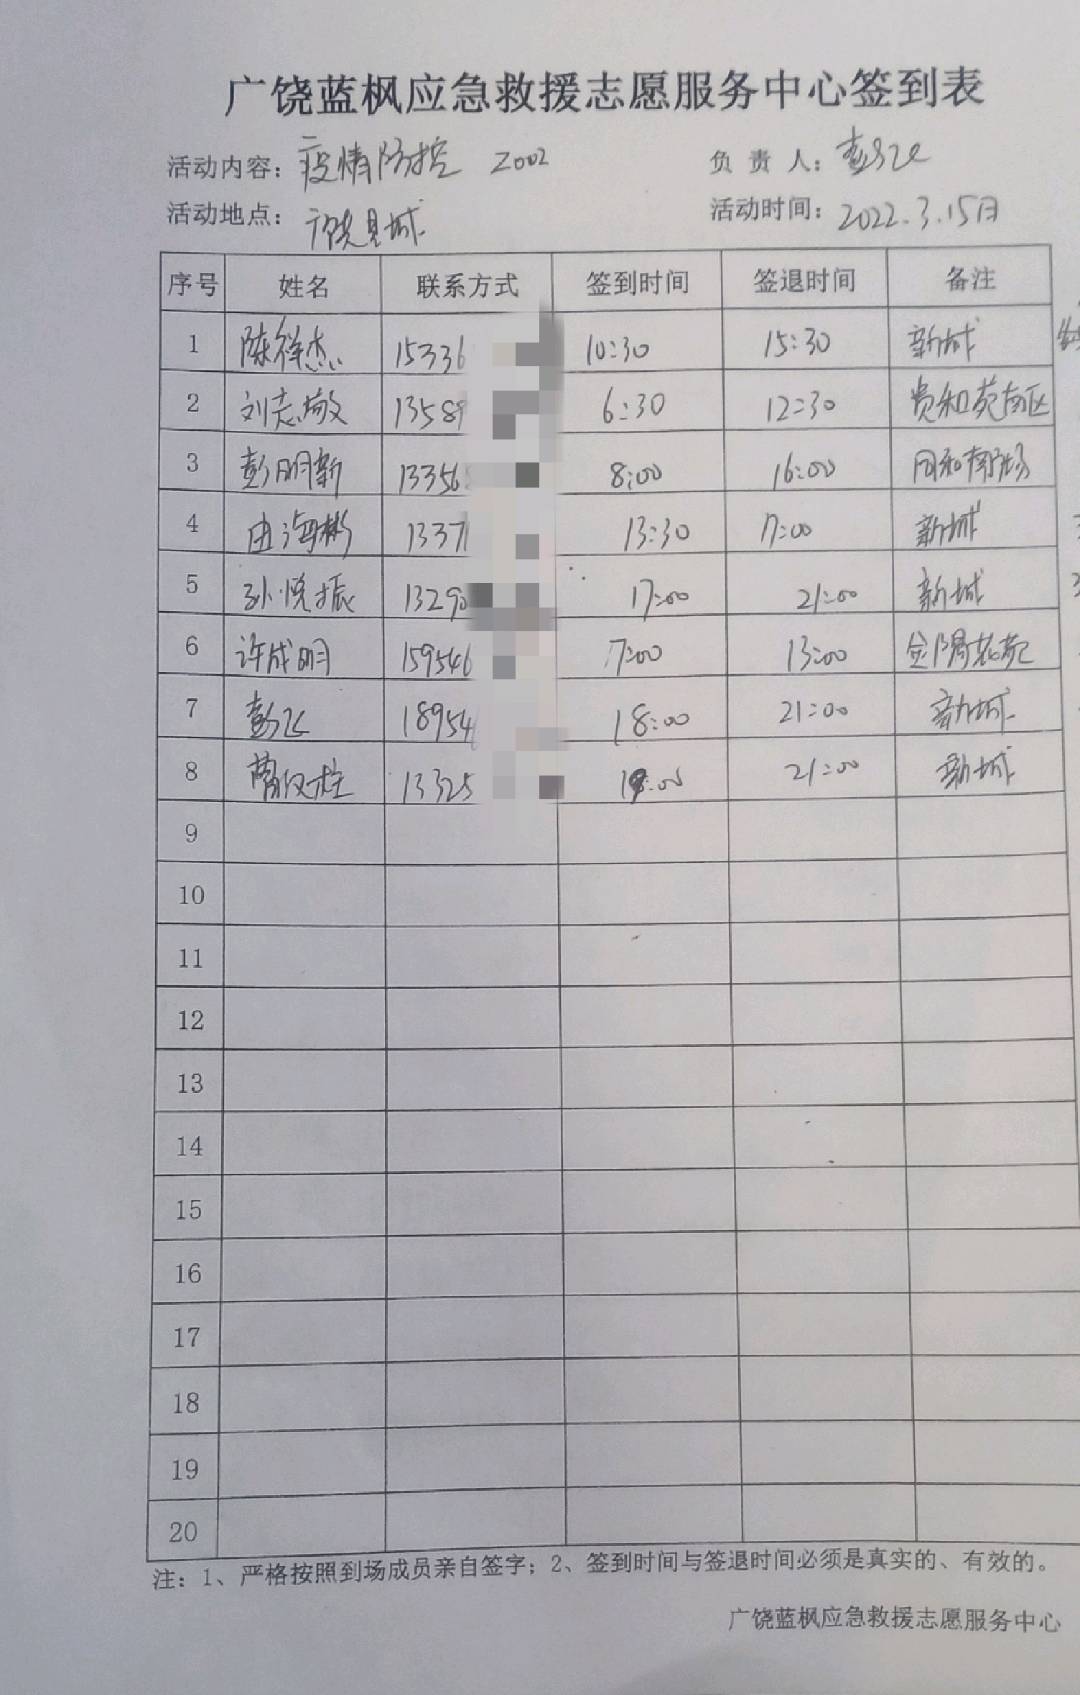 广饶蓝枫应急救援志愿服务中心签到表
活动内容: 疫情防控 2002 负责人:
活动地点: 广饶县城 活动时间: 2022.3.15日
序号 姓名 联系方式 签到时间 签退时间 备注
1 陈祥杰 15336 10:30 15:30 新城
2 刘志敏 13589 6:30 12:30 贵和苑南区
3 彭明新 13356 8:00 16:00
4 由海彬 1337 13:30 17:00 新城
5 孙悦振 13290 17:00 21:00 新城
6 许成明 159546 7:00 13:00 金陽花苑
7 彭飞 18954 18:00 21:00 新城
8 13325 21:00 新城
9
10
11
12
13
14
15
16
17
18
19
20
注: 1、严格按照到场成员亲自签字; 2、签到时间与签退时间必须是真实的、有效的。
广饶蓝枫应急救援志愿服务中心